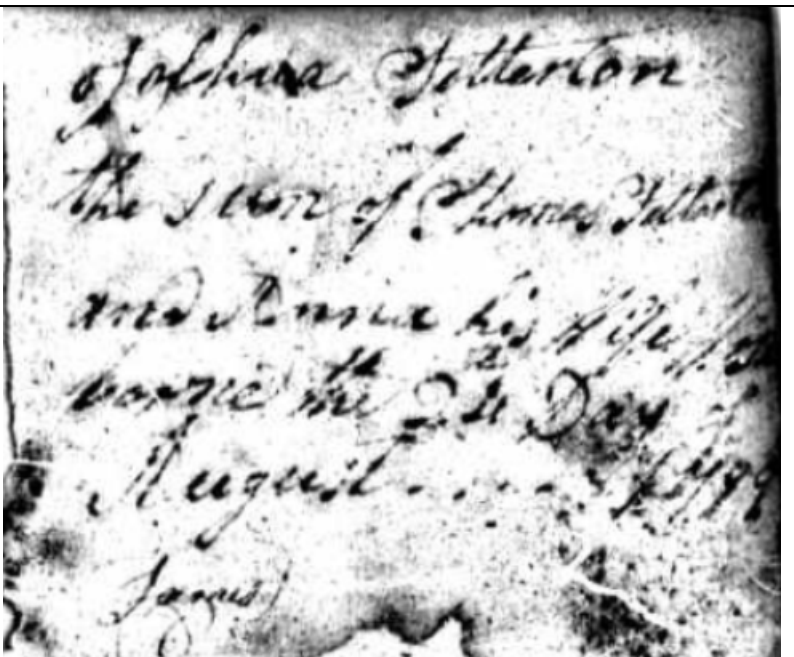 of Joshua Tetterton
the son of Thomas Tetterton
and Anna his Wife Was
borne the 24 Day of
August . . . . . 179
James